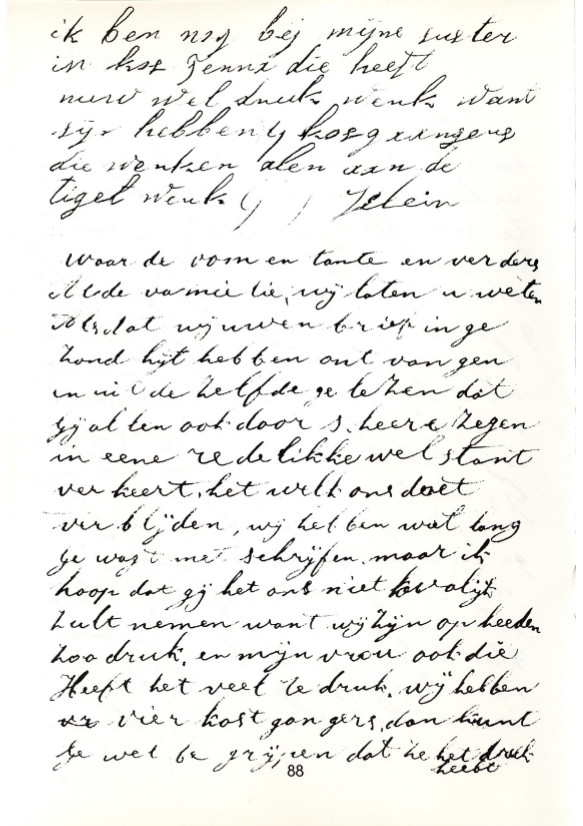 ik ben nog bej mijne suster
in kos Jenna die heeft
nuw wel druk werk want
sij hebben 4 kosgangers
die werken alen aan de
tigel werk Jelein
Waar de oom en tante en verders
Al de vamielie, wij laten u weten
Als dat wij uwen brief in ge
zond hijt hebben ont van gen
en uit de zelfde ge lezen dat
gij al len ook door s heere zegen
in eene redelikke wel stant
ver keert, het welk ons doet
ver blijden, wij hebben wat lang
ge wagt met schrijfen, maar ik
hoop dat gij het ons niet kwalijk
zult nemen want wij zijn op heeden
zoo druk, en mijn vrou ook die
Heeft het veel te druk. wij hebben
vier kost gangers, dan kunt
ge wel be grijpen dat ze het druk
heebt
88